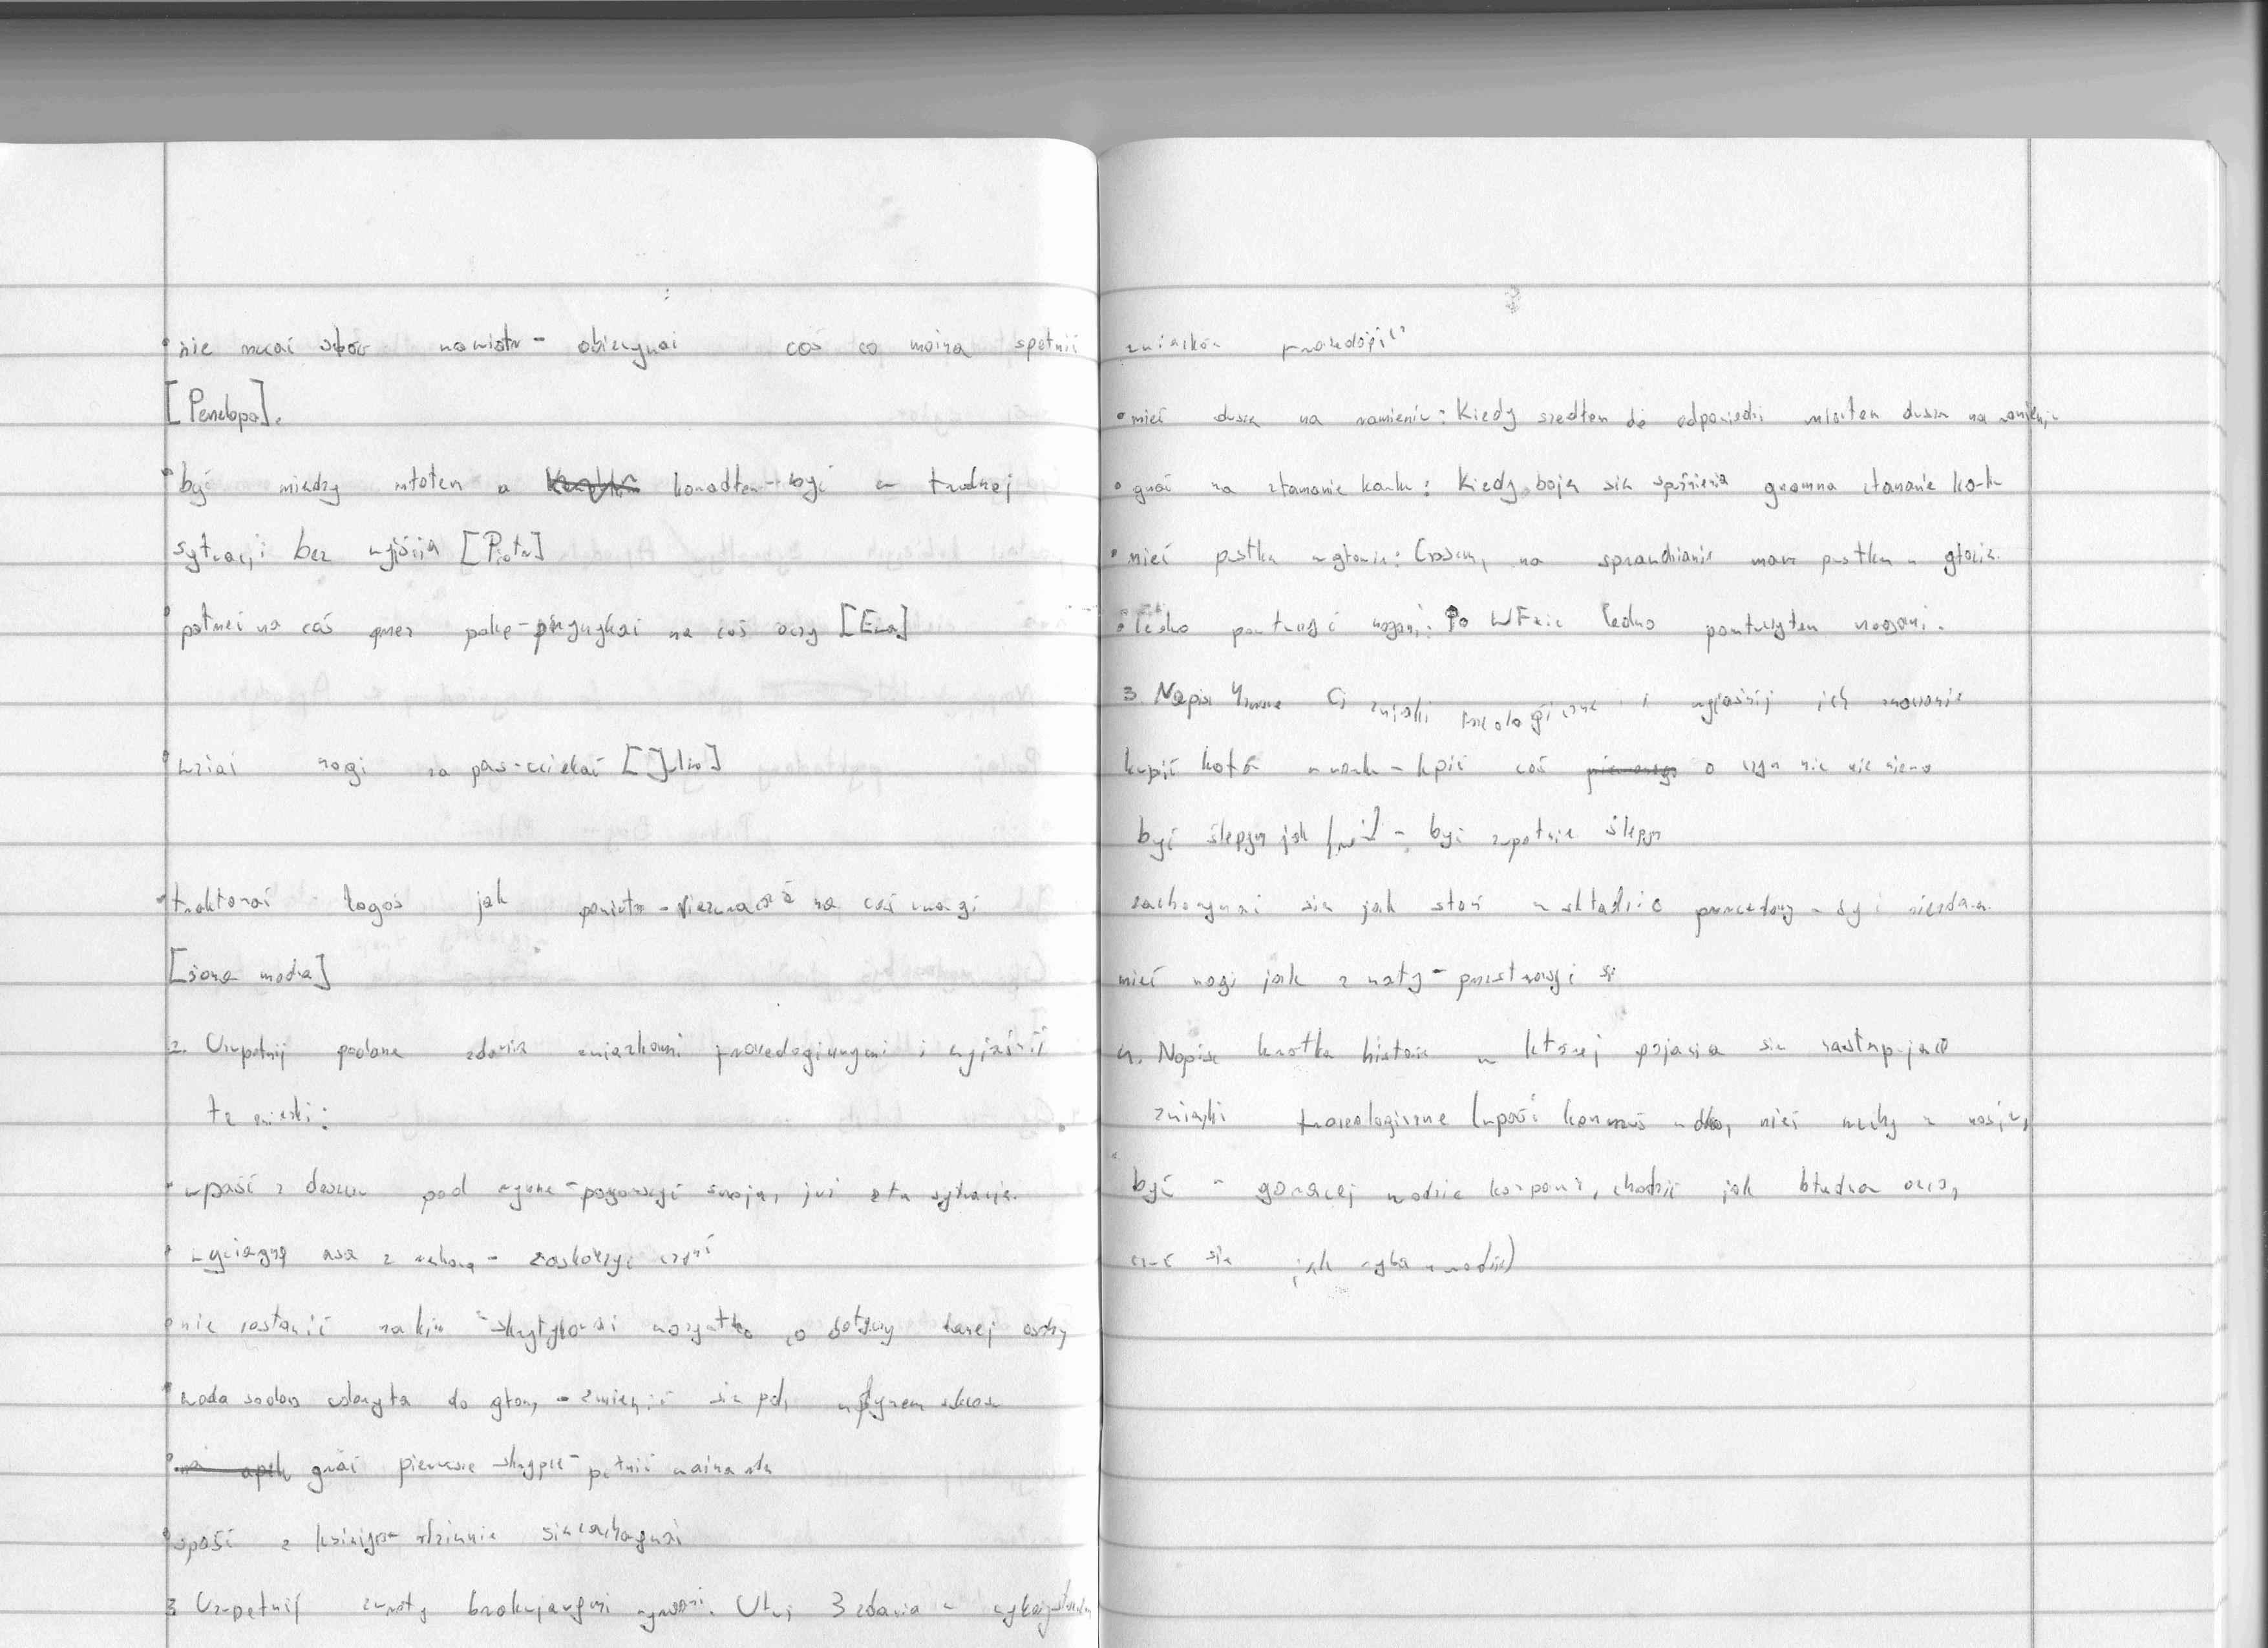 nie rzucać słów na wiatr - obiecywać coś co można spełnić
[Penelopa].
być między młotem a kowadłem - być w trudnej
sytuacji bez wyjścia [Piotr]
patrzeć na coś przez palce - przymykać na coś oczy [Ewa]
wziąć nogi za pas - uciekać [Julia]
traktować kogoś jak powietrze - nie zwracać na coś uwagi
[żona]
2. Uzupełnij podane zdania związkami frazeologicznymi i wyjaśnij
te związki:
wpaść z deszczu pod rynnę - pogorszyć swoją, już złą sytuację.
wyciągnę asa z rękawa - zaskoczyć czymś
nie zostawić na kimś - skrytykować wszystko co dotyczy danej osoby
woda sodowa uderzyła do głowy - zmienić się pod wpływem sukcesu
grać pierwsze skrzypce - pełnić ważną rolę
spaść z księżyca - dziwnie się zachowywać
3 Uzupełnij zwroty brakującymi wyrazami. Ułóż 3 zdania z
związków frazeologicznych
mieć duszę na ramieniu: Kiedy szedłem do odpowiedzi miałem duszę na ramieniu
gnać na złamanie karku: Kiedy boję się spóźnienia gnam na złamanie karku
mieć pustkę w głowie: Czasem, na sprawdzianie mam pustkę w głowie.
ledwo powłóczyć nogami: Po WFie ledwo powłóczyłem nogami.
3. Napisz związki frazeologiczne i wyjaśnij ich znaczenie
kupić kota w worku - kupić coś o czym nic nie wiemy
być ślepym jak - być zupełnie ślepym
zachowywać się jak słoń w składzie porcelany - być niezdarą.
mieć nogi jak z waty - przestraszyć się
4. Napisz krótką historię w której pojawią się następujące
związki frazeologiczne (wpaść komuś w oko, mieć muchy w nosie,
być w gorącej wodzie kąpany, chodzić jak błędna owca,
czuć się jak ryba w wodzie)